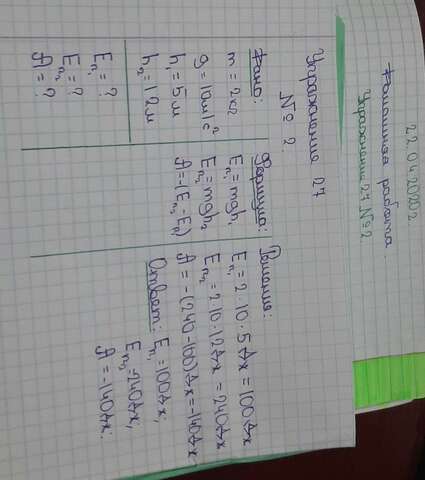 22.04.2020г.
Домашняя работа.
Упражнение 27 № 2
Упражнение 27
№ 2.
Дано:
m = 2кг
g = 10м/с²
h₁ = 5м
h₂ = 12м
Eп₁ = ?
Eп₂ = ?
A = ?
Формула:
Eп₁ = mgh₁
Eп₂ = mgh₂
A = -(Eп₂ - Eп₁)
Решение:
Eп₁ = 2 · 10 · 5 Дж = 100 Дж
Eп₂ = 2 · 10 · 12 Дж = 240 Дж
A = - (240 - 100) Дж = -140 Дж.
Ответ: Eп₁ = 100 Дж;
Eп₂ = 240 Дж;
A = -140 Дж.